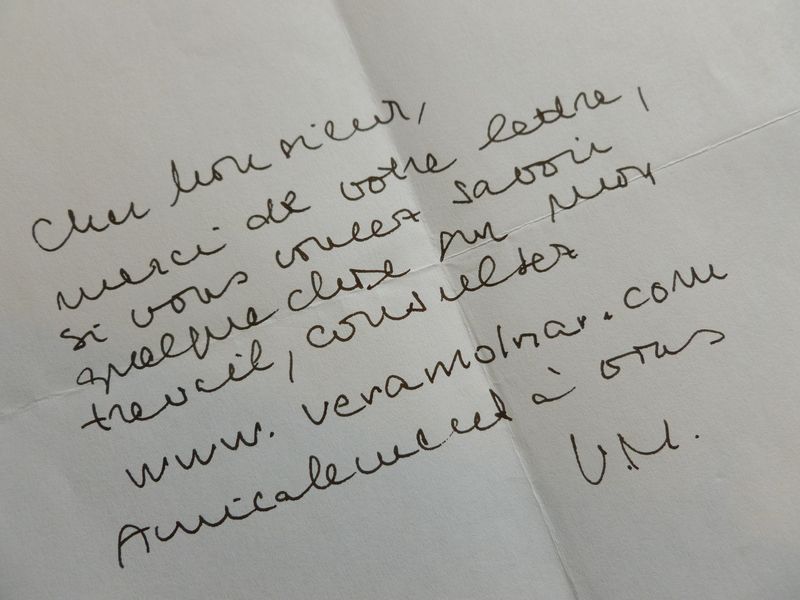 Cher Monsieur,
merci de votre lettre,
si vous voulez savoir
quelque chose sur mon
travail, consultez
www.veramolnar.com
Amicalement à vous
V.M.